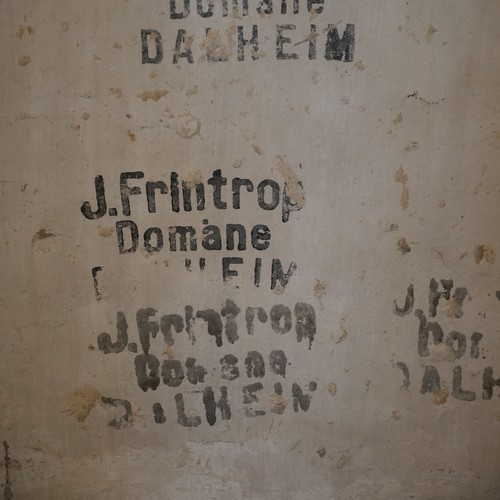 Domäne
DALHEIM
J.Frintrop
Domäne
HEIN
J.Frintrop
Domäne
DALHEIN
J.Fr
Do
DALH